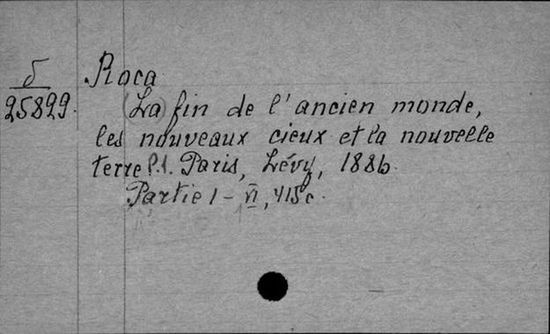 Б
25829.
Roca
(La) fin de l'ancien monde,
les nouveaux cieux et la nouvelle
terre P.1. Paris, Lévy, 1886.
Partie 1 - VI, 415c.